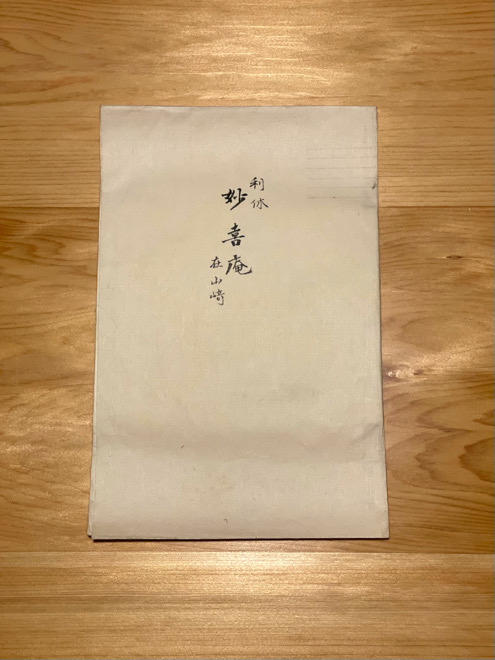 利休
妙喜庵
在山崎